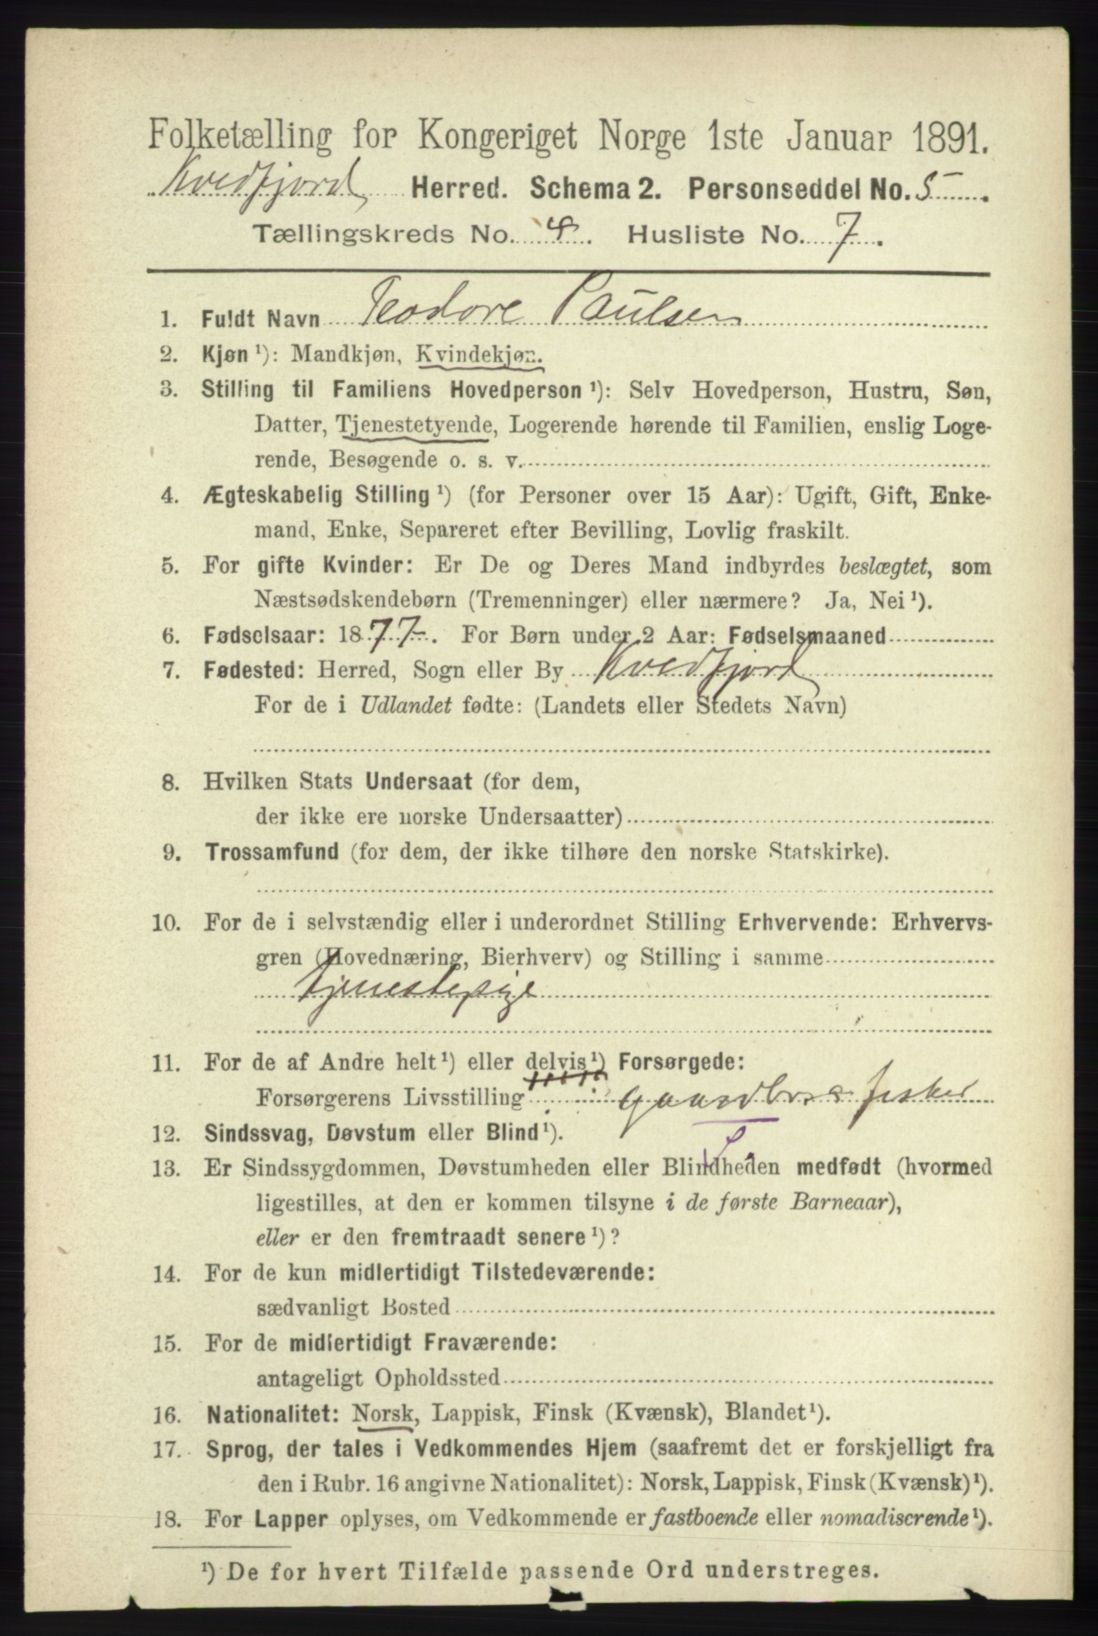 Folketælling for Kongeriget Norge 1ste Januar 1891.
Kvedfjord Herred. Schema 2. Personseddel No. 5.
Tællingskreds No. 4. Husliste No. 7.
1. Fuldt Navn Teodore Paulsen
2. Kjøn ¹): Mandkjøn, Kvindekjøn.
3. Stilling til Familiens Hovedperson ¹): Selv Hovedperson, Hustru, Søn,
Datter, Tjenestetyende, Logerende hørende til Familien, enslig Loge-
rende, Besøgende o. s. v.
4. Ægteskabelig Stilling ¹) (for Personer over 15 Aar): Ugift, Gift, Enke-
mand, Enke, Separeret efter Bevilling, Lovlig fraskilt.
5. For gifte Kvinder: Er De og Deres Mand indbyrdes beslægtet, som
Næstsødskendebørn (Tremenninger) eller nærmere? Ja, Nei ¹).
6. Fødselsaar: 1877. For Børn under 2 Aar: Fødselsmaaned
7. Fødested: Herred, Sogn eller By Kvedfjord
For de i Udlandet fødte: (Landets eller Stedets Navn)
8. Hvilken Stats Undersaat (for dem,
der ikke ere norske Undersaatter)
9. Trossamfund (for dem, der ikke tilhøre den norske Statskirke).
10. For de i selvstændig eller i underordnet Stilling Erhvervende: Erhvervs-
gren (Hovednæring, Bierhverv) og Stilling i samme
tjenestepige
11. For de af Andre helt ¹) eller delvis ¹) Forsørgede:
Forsørgerens Livsstilling gaardbr. fisker
12. Sindssvag, Døvstum eller Blind ¹).
13. Er Sindssygdommen, Døvstumheden eller Blindheden medfødt (hvormed
ligestilles, at den er kommen tilsyne i de første Barneaar),
eller er den fremtraadt senere ¹)?
14. For de kun midlertidigt Tilstedeværende:
sædvanligt Bosted
15. For de midlertidigt Fraværende:
antageligt Opholdssted
16. Nationalitet: Norsk, Lappisk, Finsk (Kvænsk), Blandet ¹).
17. Sprog, der tales i Vedkommendes Hjem (saafremt det er forskjelligt fra
den i Rubr. 16 angivne Nationalitet): Norsk, Lappisk, Finsk (Kvænsk) ¹).
18. For Lapper oplyses, om Vedkommende er fastboende eller nomadiserende ¹).
¹) De for hvert Tilfælde passende Ord understreges.